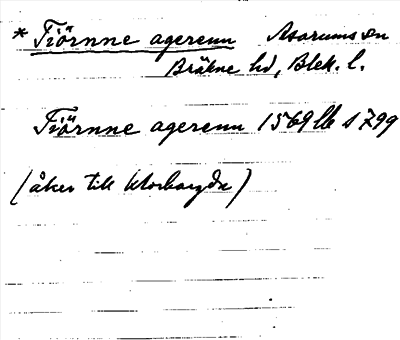 * Fiörnne agerenn Asarums sn
Bräkne hd, Blek. l.
Fiörnne agerenn 1569 lb s 799
(åker till Klorbacyda)